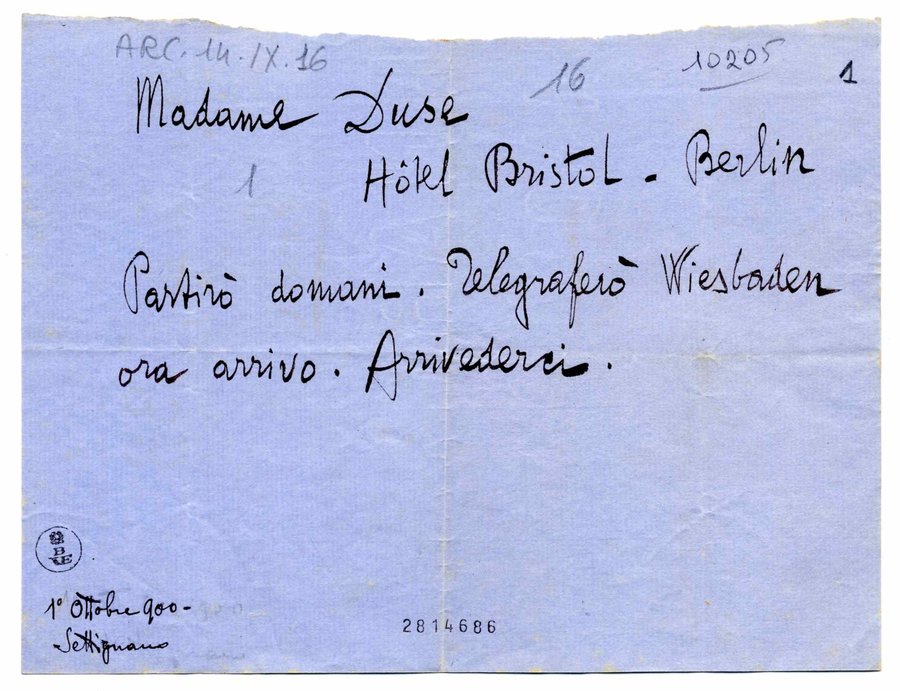 ARC. 14. IX. 16
16
10205
1
Madame Duse
1
Hôtel Bristol - Berlin
Partirò domani. Telegraferò Wiesbaden
ora arrivo. Arrivederci.
B
VE
1º Ottobre 900-
Settignano
2814686